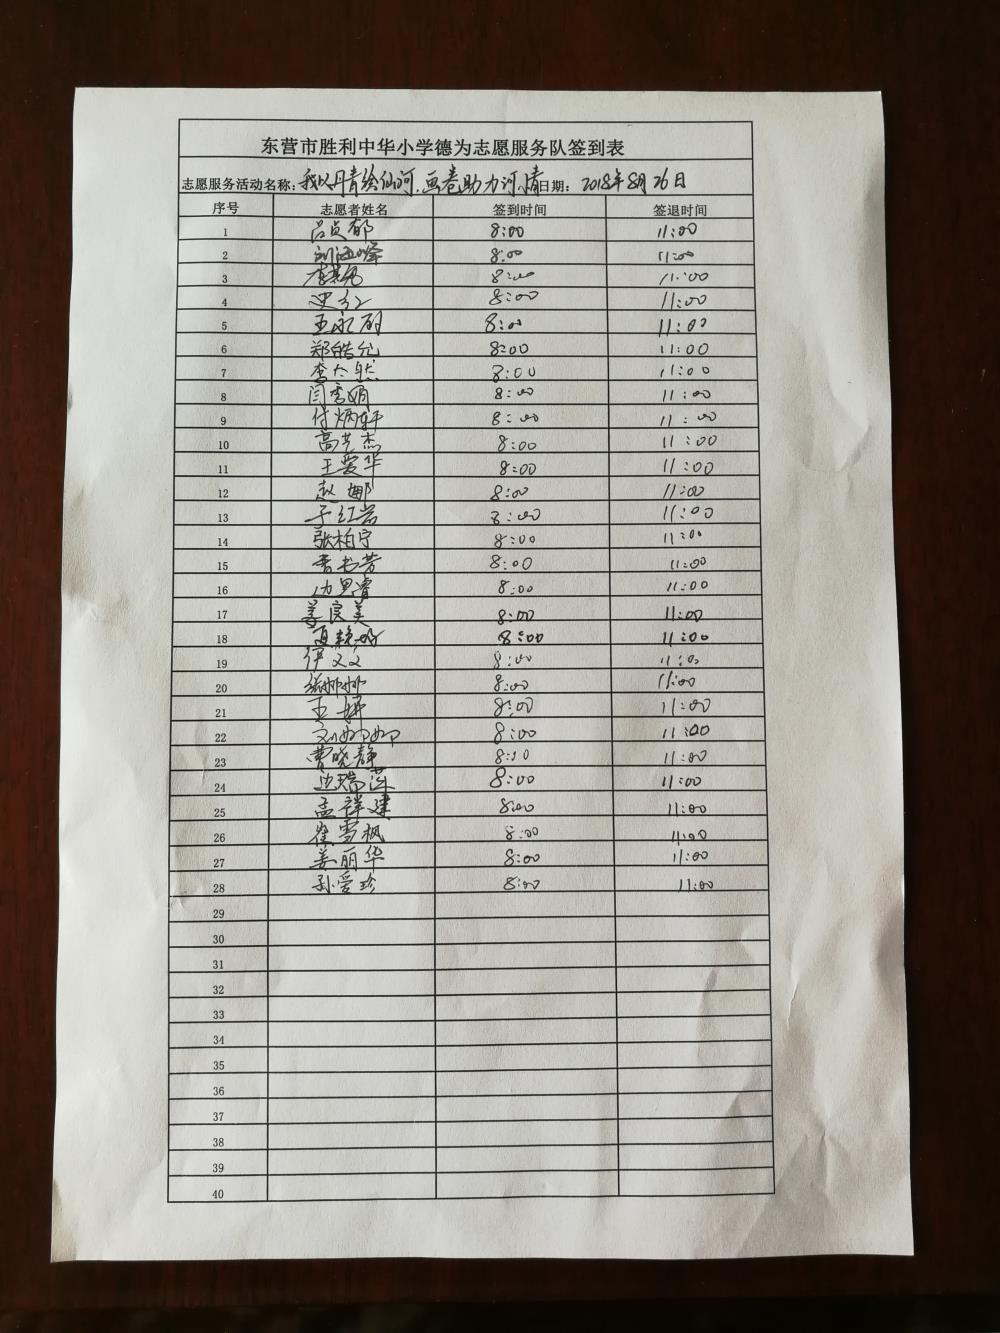 东营市胜利中华小学德为志愿服务队签到表
志愿服务活动名称:我以丹青绘仙河,画卷助力河清 日期: 2018年8月26日
序号 志愿者姓名 签到时间 签退时间
1 吕贞郁 8:00 11:00
2 8:00 11:00
3 8:00 11:00
4 史红 8:00 11:00
5 8:00 11:00
6 郑皓允 8:00 11:00
7 李大然 8:00 11:00
8 闫秀娟 8:00 11:00
9 付炳轩 8:00 11:00
10 高艺杰 8:00 11:00
11 王爱华 8:00 11:00
12 赵娜 8:00 11:00
13 于红岩 8:00 11:00
14 张柏宁 8:00 11:00
15 8:00 11:00
16 边思睿 8:00 11:00
17 姜良美 8:00 11:00
18 8:00 11:00
19 伊文文 8:00 11:00
20 8:00 11:00
21 王妍 8:00 11:00
22 刘娜娜 8:00 11:00
23 曹晓静 8:10 11:00
24 边瑞莲 8:00 11:00
25 孟祥建 8:00 11:00
26 崔雪枫 8:00 11:00
27 姜丽华 8:00 11:00
28 孙爱珍 8:00 11:00
29
30
31
32
33
34
35
36
37
38
39
40